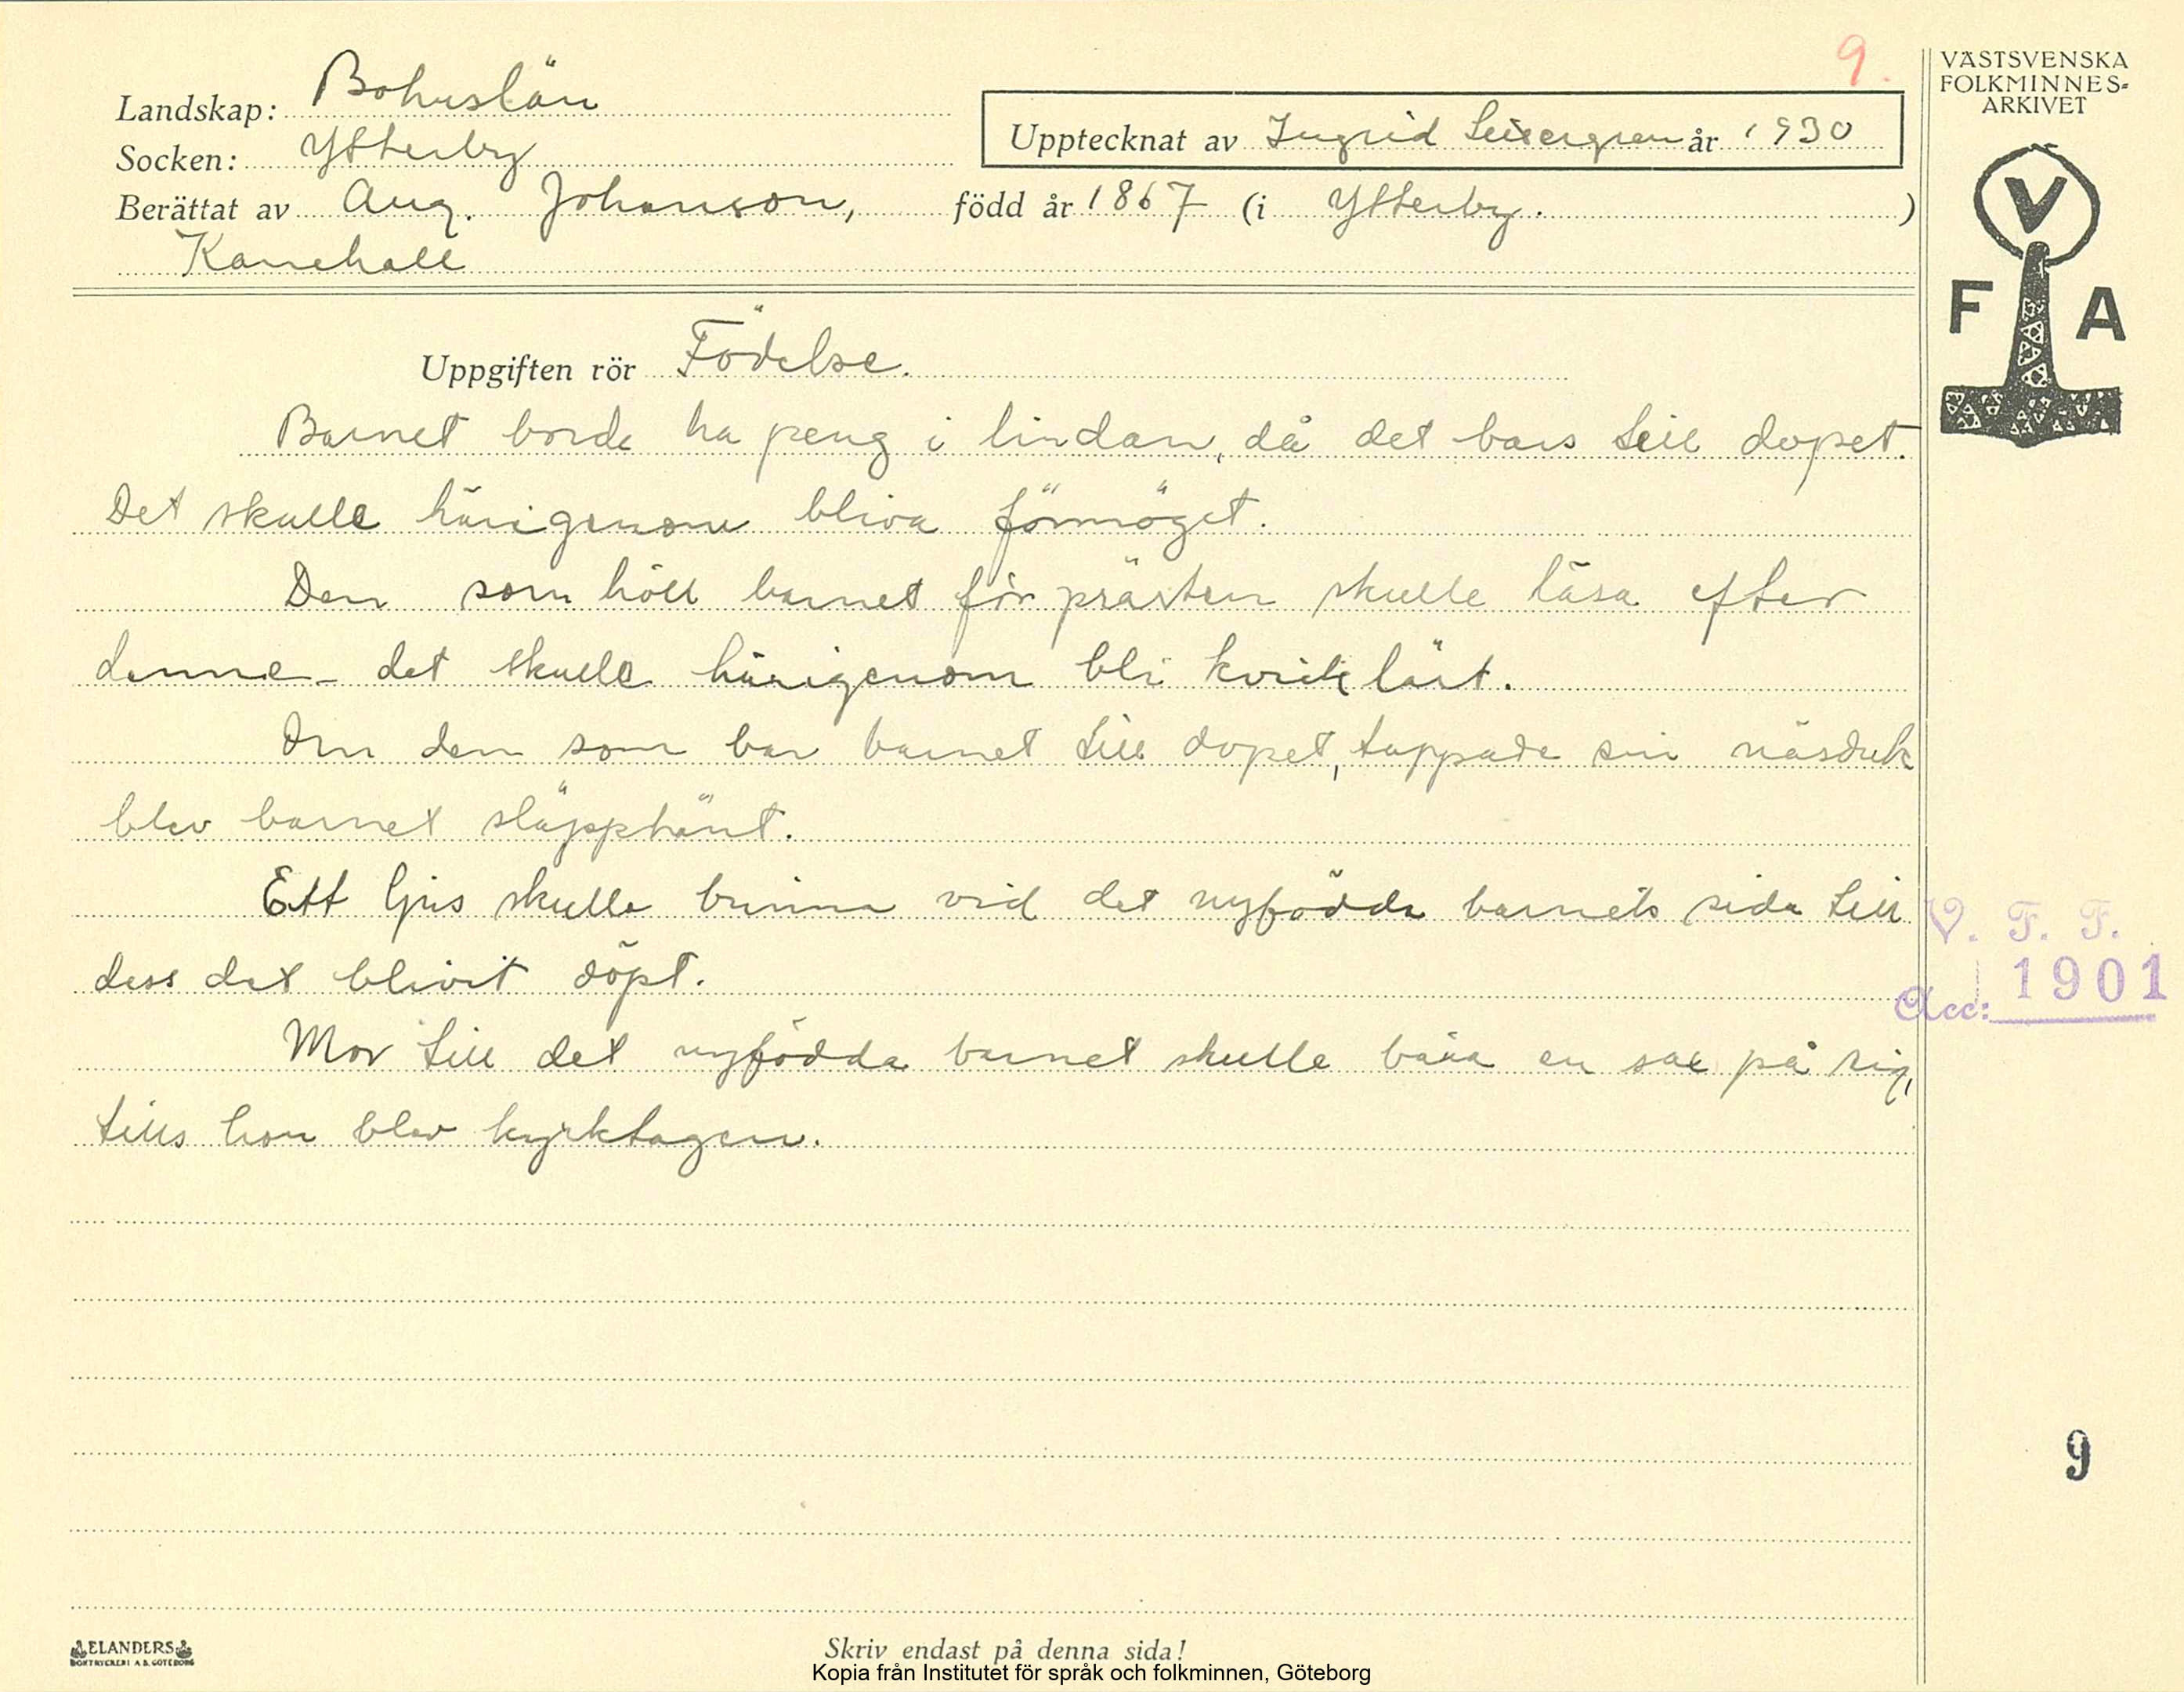 9.
VÄSTSVENSKA
FOLKMINNES-
ARKIVET
Landskap: Bohuslän
Upptecknat av Ingrid år 1930
Socken: Ytterby
Berättat av Aug. Johanson, född år 1867 (i Ytterby. )
Kanehall
V
F A
Uppgiften rör Födelse.
Barnet borde ha peng i lindan, då det bars till dopet.
Det skulle härigenom bliva förmöget.
Den som höll barnet för prästen skulle läsa efter
denne - det skulle härigenom bli kvicklärt.
Om den som bar barnet till dopet, tappade sin näsduk
blev barnet släpphänt.
Ett ljus skulle brinna vid det nyfödda barnets sida till
dess det blivit döpt.
V. F. F.
Acc: 1901
Mor till det nyfödda barnet skulle bära en sax på sig,
tills hon blev kyrktagen.
9
ELANDERS
BOKTRYCKERI A.B. GÖTEBORG
Skriv endast på denna sida!
Kopia från Institutet för språk och folkminnen, Göteborg